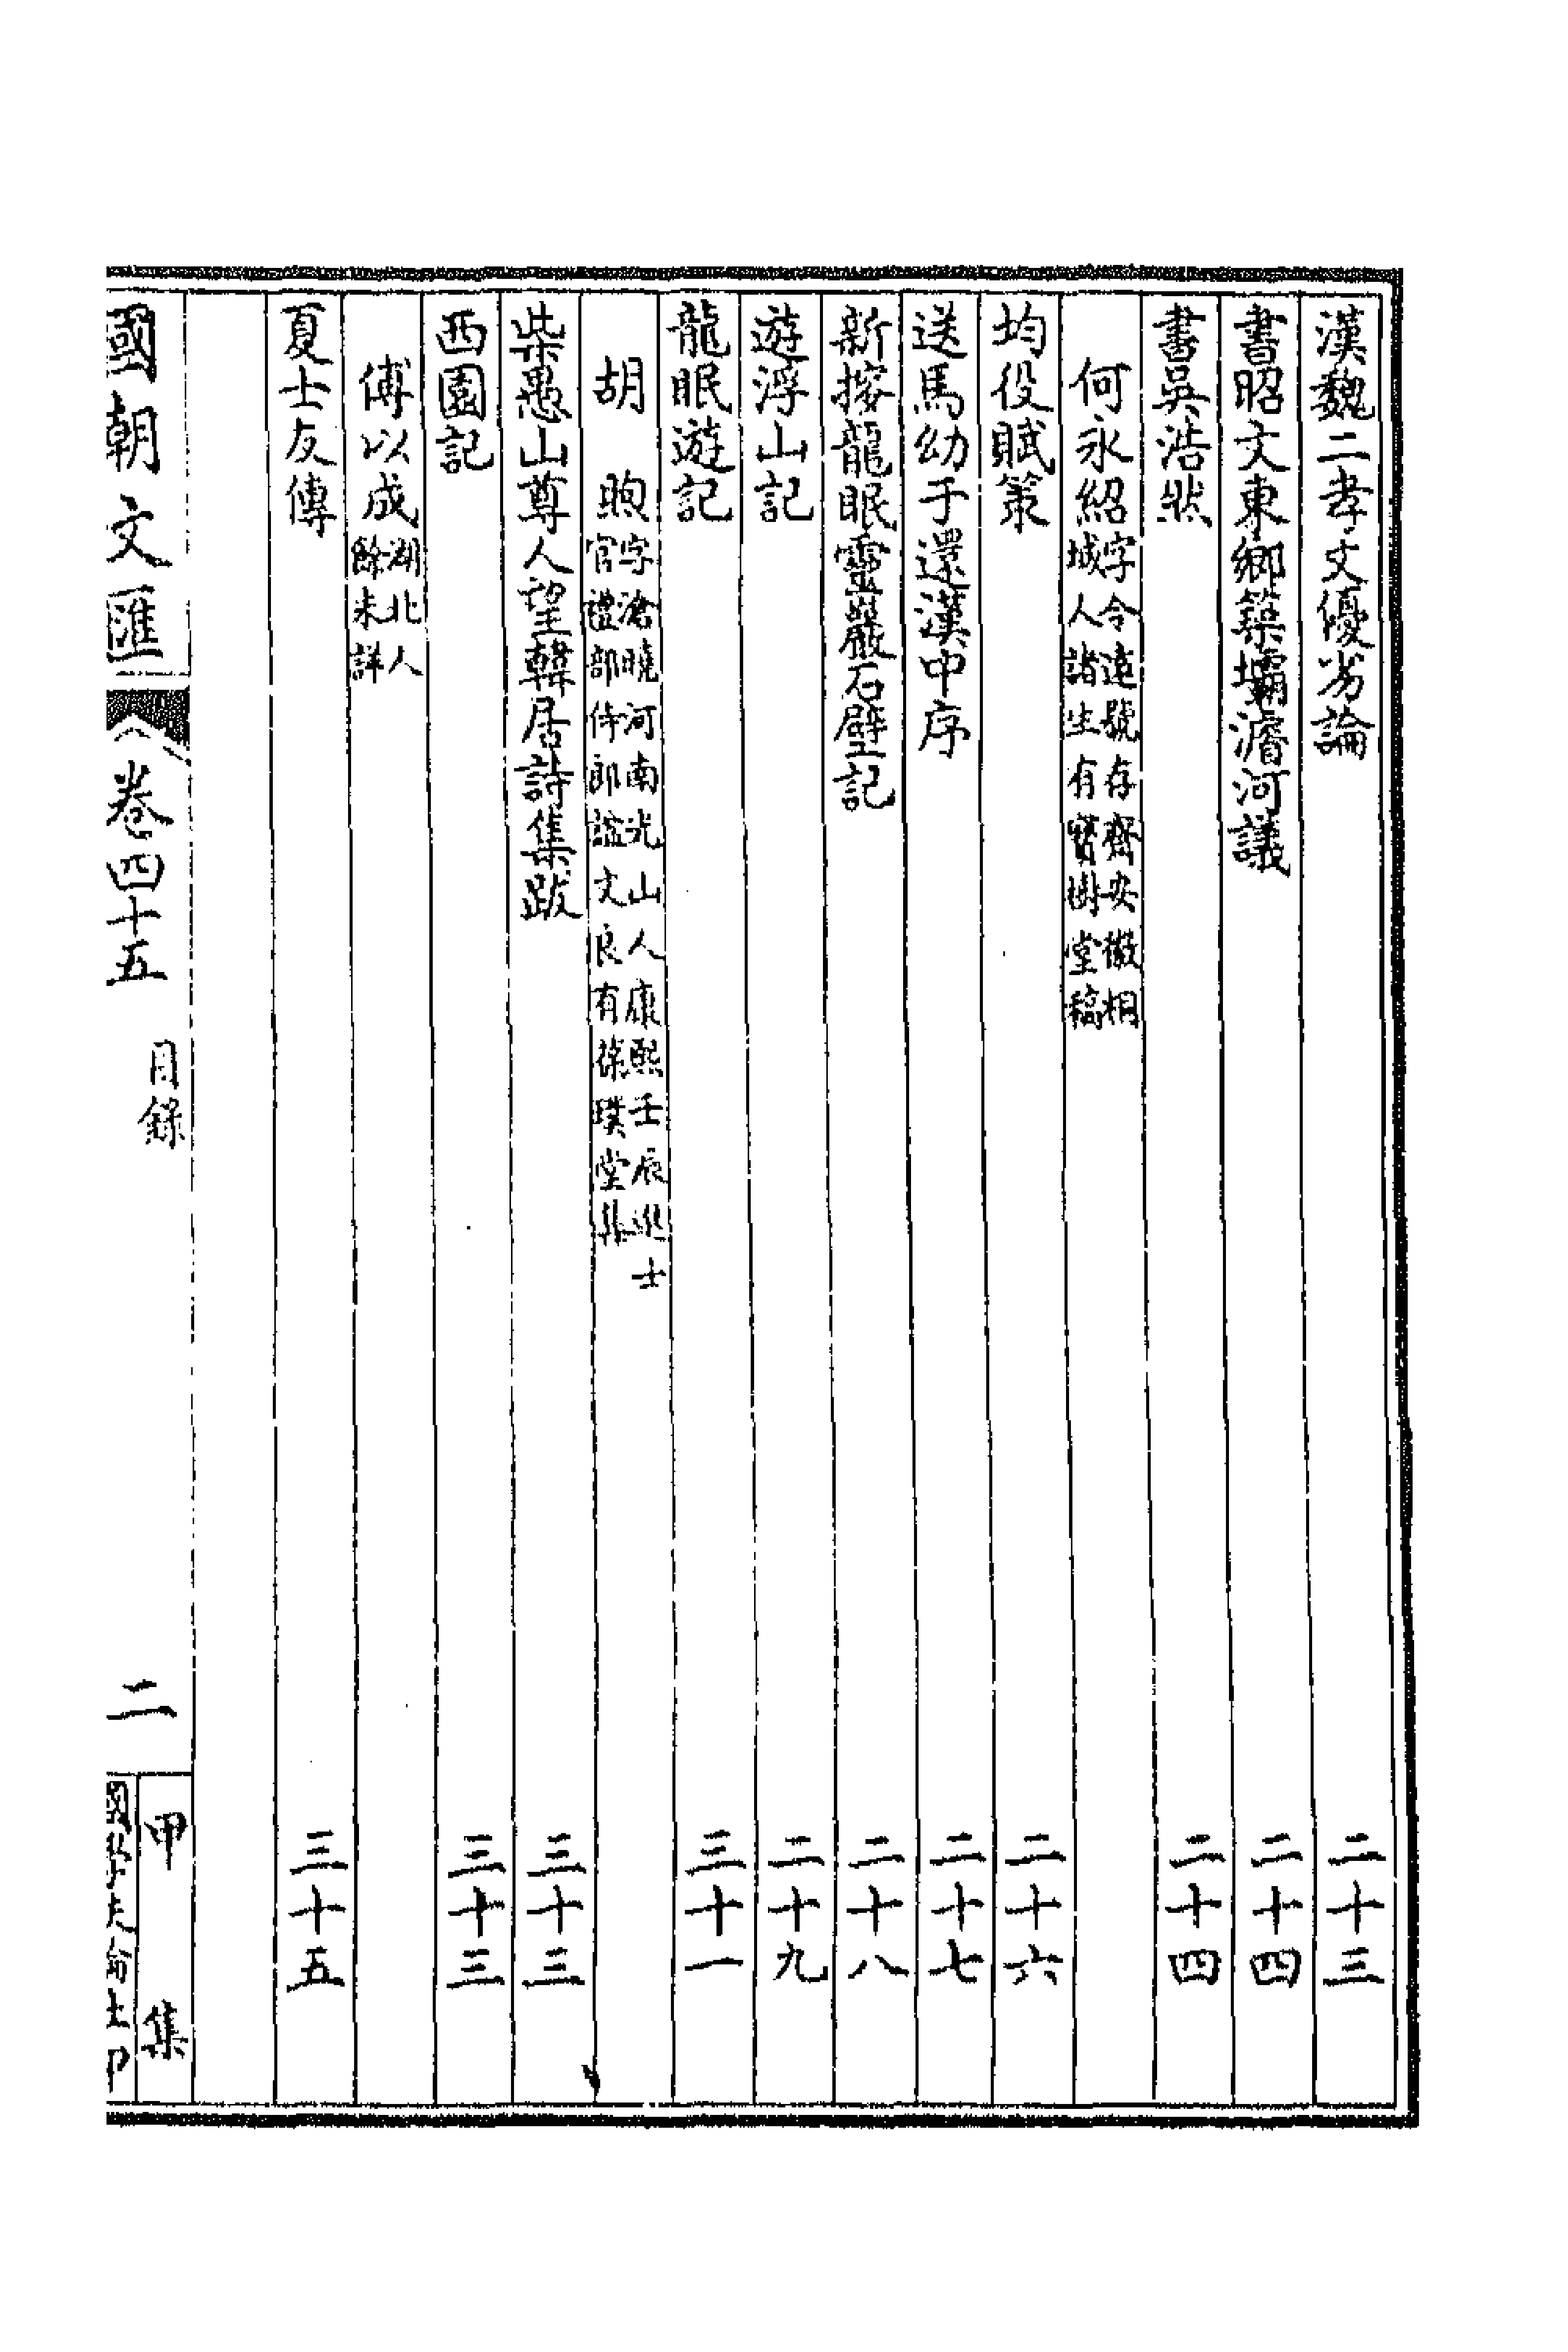 漢魏二孝文優劣論 二十三
書昭文東鄉築壩濬河議 二十四
書吳浩然 二十四
何永紹 字令遠號存齋安徽桐
城人諸生有寶樹堂稿
均役賦策 二十六
送馬幼子還漢中序 二十七
新搜龍眠靈巖石壁記 二十八
遊浮山記 二十九
龍眠遊記 三十一
胡煦 字滄曉河南光山人康熙壬辰進士
官禮部侍郎諡文良有葆璞堂集
柴愚山尊人望韓居詩集跋 三十三
西園記 三十三
傅以成 湖北人
餘未詳
夏士友傳 三十五
國朝文匯 卷四十五 目錄 二 甲集
國學扶輪社印